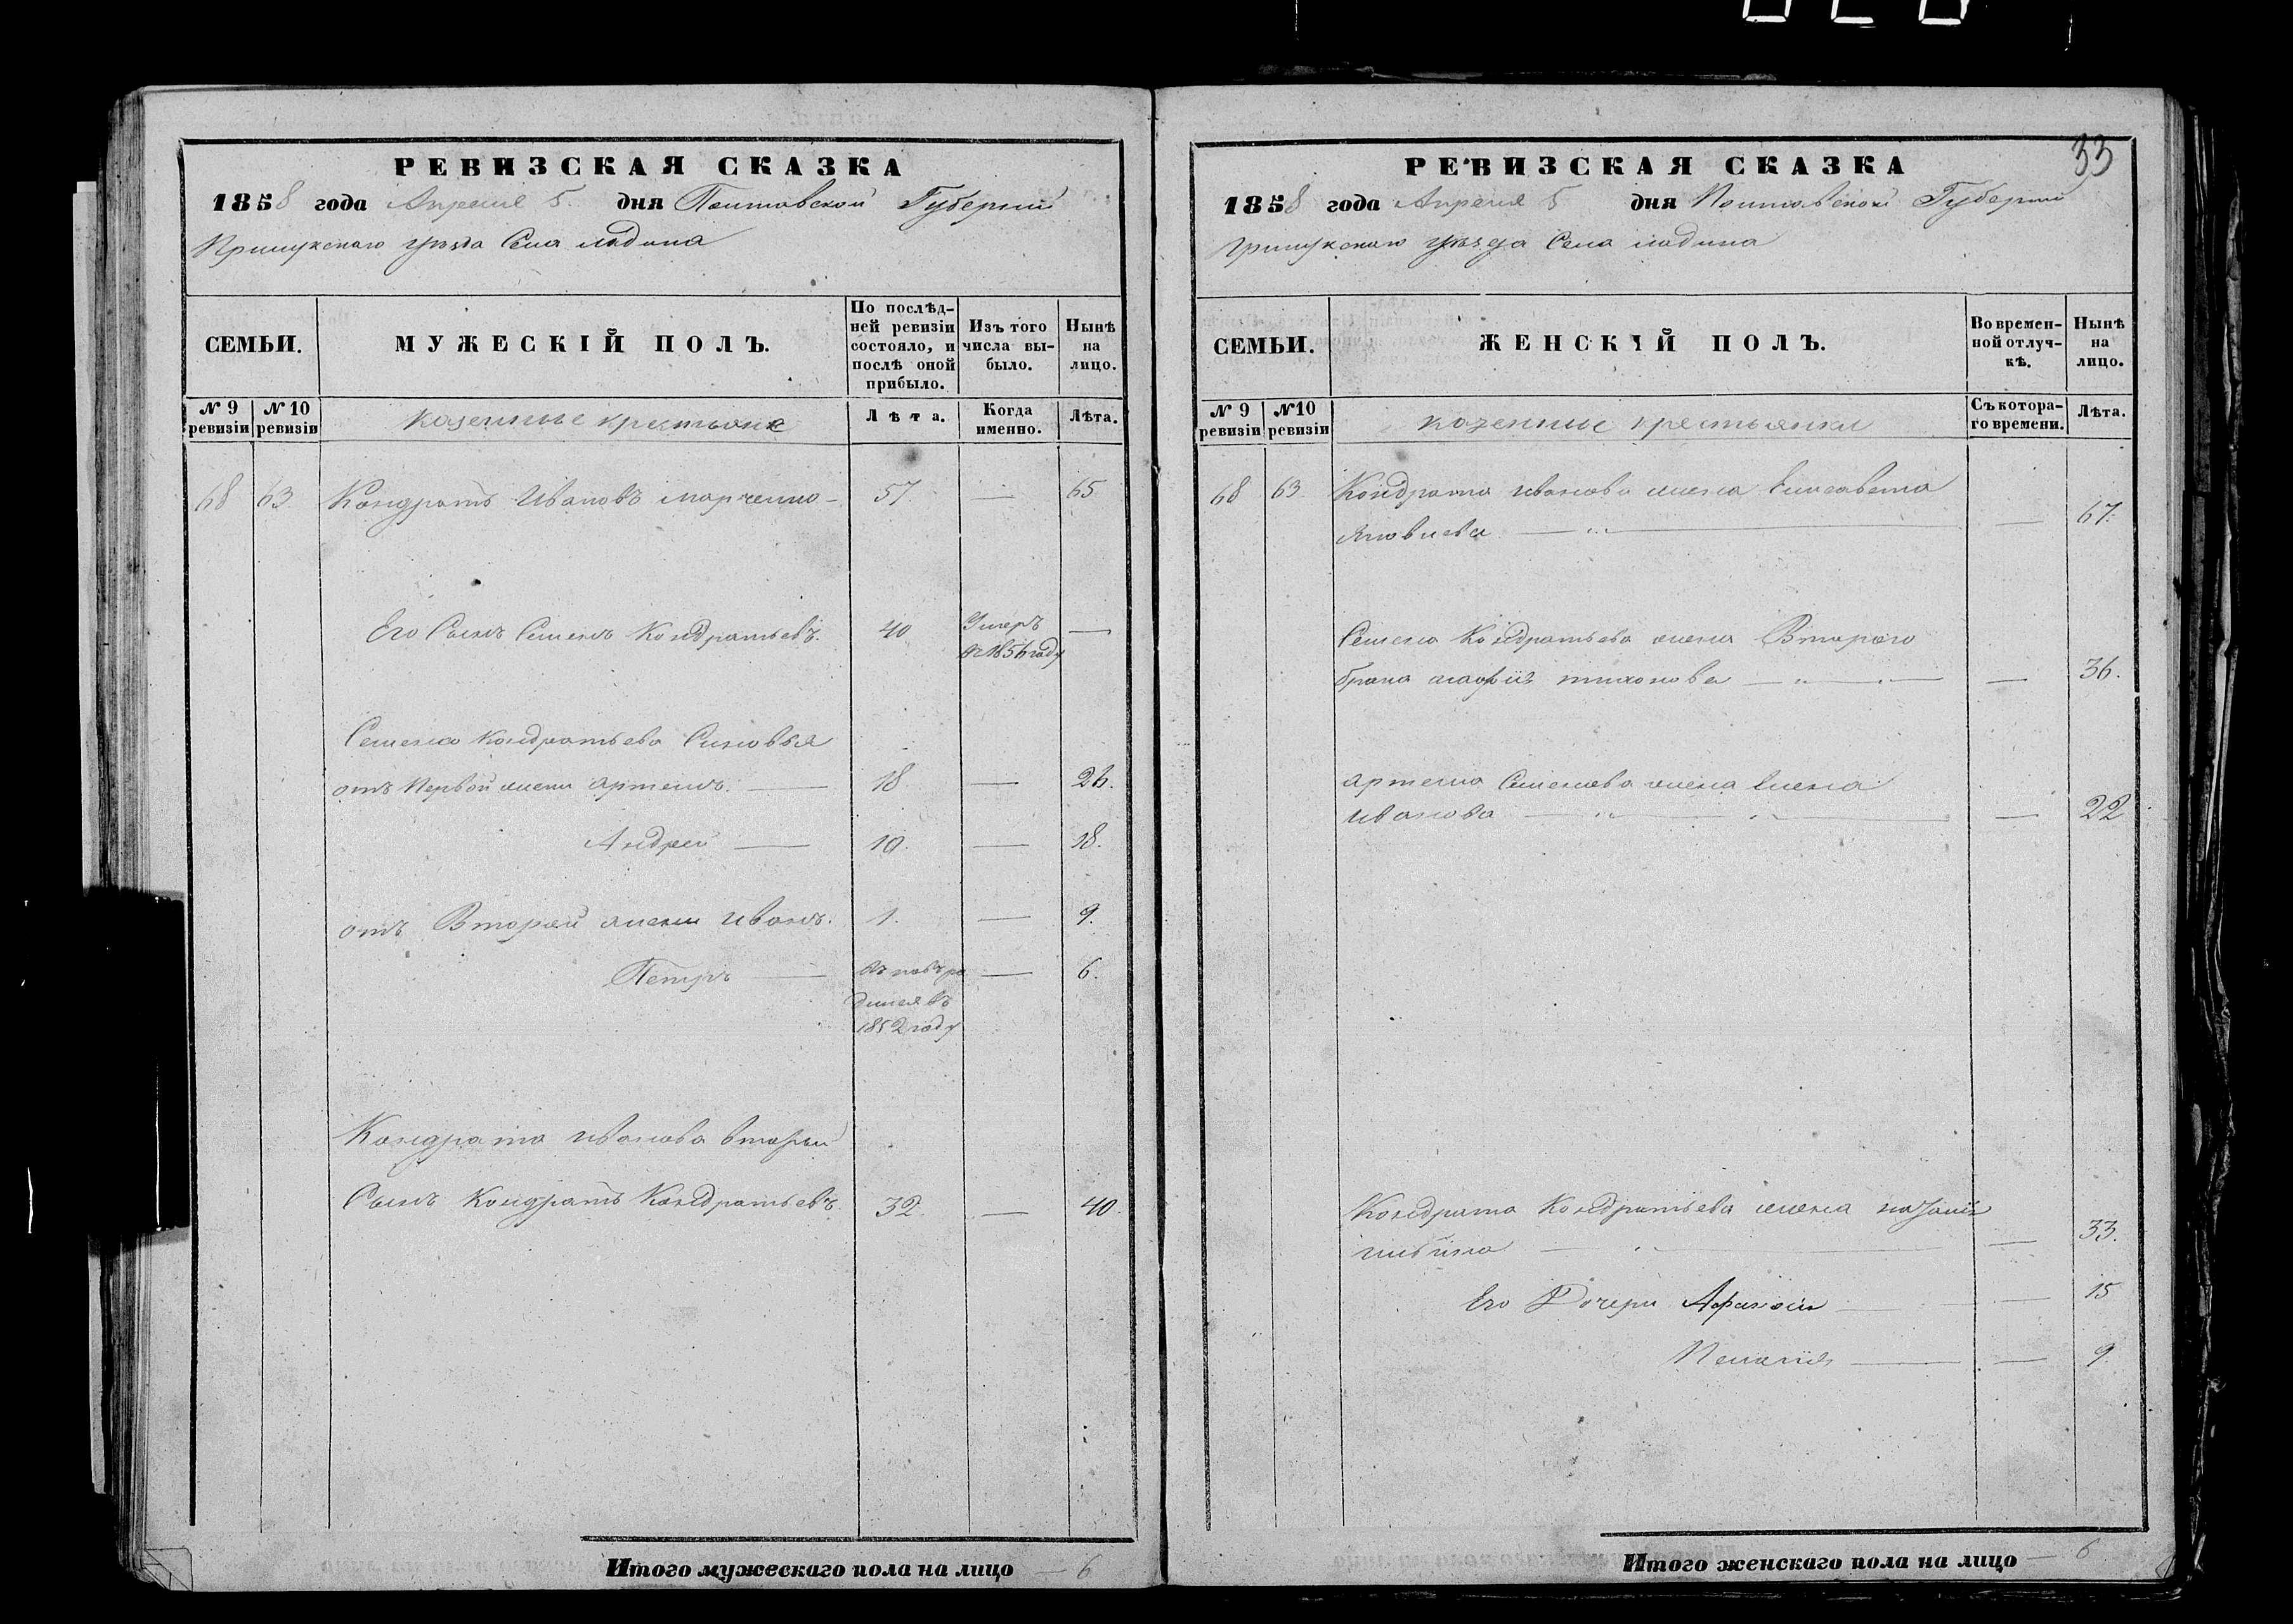 33
РЕВИЗСКАЯ СКАЗКА
1858 года Апреля 5 дня Полтавской Губерніи
Прилукскаго уѣзда Села Ладина
СЕМЬИ.
МУЖЕСКІЙ ПОЛЪ.
По послѣд-
ней ревизіи
состояло, и
послѣ оной
прибыло.
Изъ того
числа вы-
было.
Нынѣ
на
лицо.
№ 9
ревизіи
№ 10
ревизіи
казенные крестьяне
Лѣта.
Когда
именно.
Лѣта.
68 63 Кондратъ Ивановъ Марченко — 57 — 65
Его Сынъ Семенъ Кондратьевъ. 40 Умеръ —
въ 1856 году
Семена Кондратьева Синовья
отъ Первой жени Артемъ. — 18 — 26.
Андрей — 10. — 18.
отъ Второй жени Иванъ. 1. — 9.
Петръ — — 6.
1852 году
Кондрата Иванова вторый
Сынъ Кондратъ Кондратьевъ 32. — 40.
Итого мужескаго пола на лицо — 6
РЕВИЗСКАЯ СКАЗКА
1858 года Апреля 5 дня Полтавской Губерніи
Прилукскаго уѣзда Села Ладина
СЕМЬИ.
ЖЕНСКІЙ ПОЛЪ.
Во времен-
ной отлуч-
кѣ.
Нынѣ
на
лицо.
№ 9
ревизіи
№10
ревизіи
казенные крестьянки
Съ котора-
го времени.
Лѣта.
68 63. Кондрата Иванова жена Елисавета
Яковлева — — 67.
Семена Кондратьева жена Втораго
брака Марія Тихонова — — 36.
Артема Семенова жена Елена
Иванова — — 22
Кондрата Кондратьева жена
— — 33.
Его Дочери — — 15
Пелагія — — 9.
Итого женскаго пола на лицо — 6